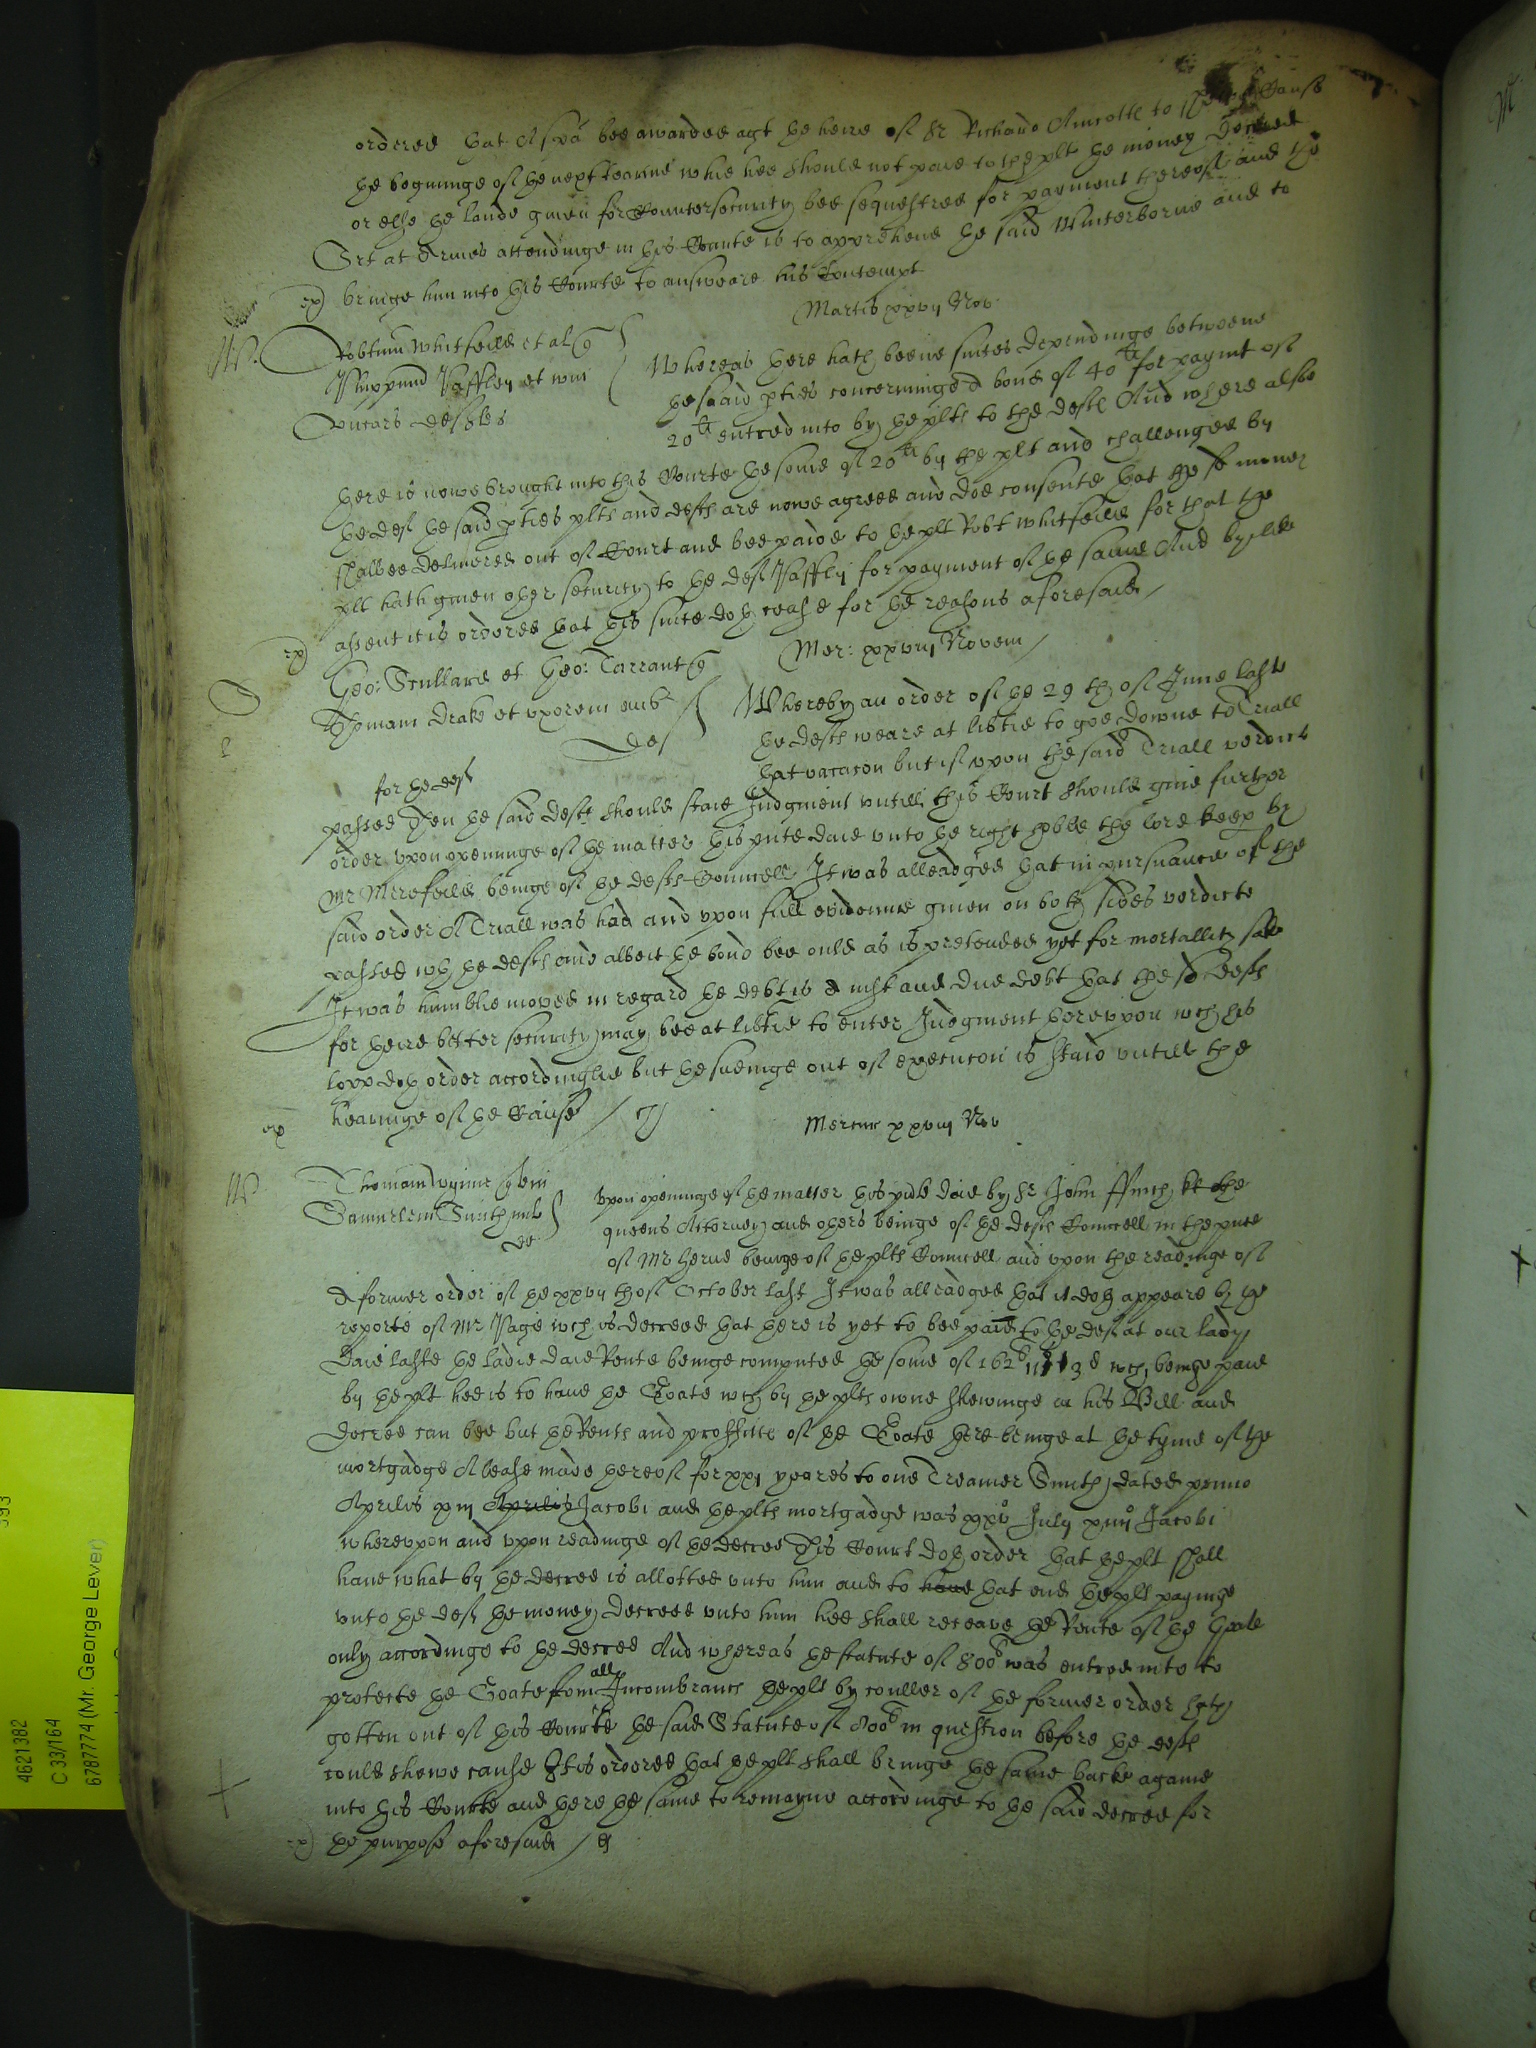 ordered that A spa bee awarded agt the heire of Sr Richard Amcotte to shewe Cause
the begninge of the next tearme whie hee should not paie to the plt the money decreed
or else the lande given for Countersecurity bee sequestred for payment thereof and the
Srt at Armes attendinge in this Courte is to apprehend the said Winterborne and to
ex) bringe him into this Courte to answeare his Contempt
Martis xxvij Nov
W. Robtum Whitfeild et al q
Phillippum Yaffley et
Quer defftes
Whereas there hath beene suites dependinge betweene
the said pties concerninge A bond of 40li for paymt of
20li entred into by the plts to the deft And where alsoe
there is nowe brought into this Courte the some of 20li by the plt and challenged by
the deft the said pties plts and defts are nowe agreed and doe consente that the sd money
shalbee delivered out of Court and bee paide to the plt Robt Whitfeild for that the
plt hath given other security to the deft Yaffley for payment of the same And by like
ex) assent it is ordered that this suite doth cease for the reasons aforesaid /
Mer: xxviij Novem /
D Geo: Scullard et Geo: Tarrant q
Thomam Drake et uxorem eius
def
for the deft
Whereby an order of the 29 th of June laste
the defts weare at libtie to goe downe to Triall
that vacacon but if upon the said Triall verdict
passed then the said deft should staie Judgment untill this Court should give further
order upon openinge of the matter this pnte daie unto the right hoble the lord keep by
Mr Merefeild beinge of the defts Councell It was alleadged that in pursuance of the
said order A Triall was had and upon full evidence given on both sides verdicte
passed wth the defts and albeit the bond bee ould as is pretended yet for mortallity sake
It was humblie moved in regard the debt is A just and due debt that the sd defts
for theire better security may bee at libtie to enter Judgment thereupon wch his
lopp doth order accordinglie but the sueinge out of execucon is staid untill the
ex hearinge of the Cause /
Mercur xxviij Nov
W Thomam Wynne
Samuelem Smith
de
Upon openinge of the matter this pnte daie by Sr John ffinch kt the
queens Attorney and others beinge of the defts Councell in the pnce
of Mr Herne beinge of the plts Councell and upon the readinge of
A former order of the xxvij th of October last It was alleadged that it doth appeare by the
reporte of Mr Page wch is decreed that there is yet to bee paid to the deft at our lady
daie laste the ladie daie Rente beinge computed the some of 162li 11s 3d wch beinge paid
by the plt hee is to have the Estate wch by the plts owne shewinge in his Bill and
decree can bee but the Rents and proffitts of the Estate there beinge at the tyme of the
mortgadge A lease made thereof for xxj yeares to one Treamer Smith dated primo
Aprilis xiij Aprilis Jacobi and the plts mortgadge was xxvo July xiiijo Jacobi
whereupon and upon readinge of the decree This Court doth order that the plt shall
have what by the decree is allotted unto him and to have that end the plt payinge
unto the deft the money decreed unto him hee shall receave the Rente of the Estate
only accordinge to the decree And whereas the statute of 800li was entred into to
protecte the Estate from all Incombrances the plt by couller of the former order hath
gotten out of this Courte the said Statute of 800li in question before the defts
could shewe cause It is ordered that the plt shall bringe the same backe againe
into this Courte and there the same to remayne accordinge to the said decree for
ex) the purpose aforesaid /
4621382
C 33/164
6787774 (Mr. George Lever)
593